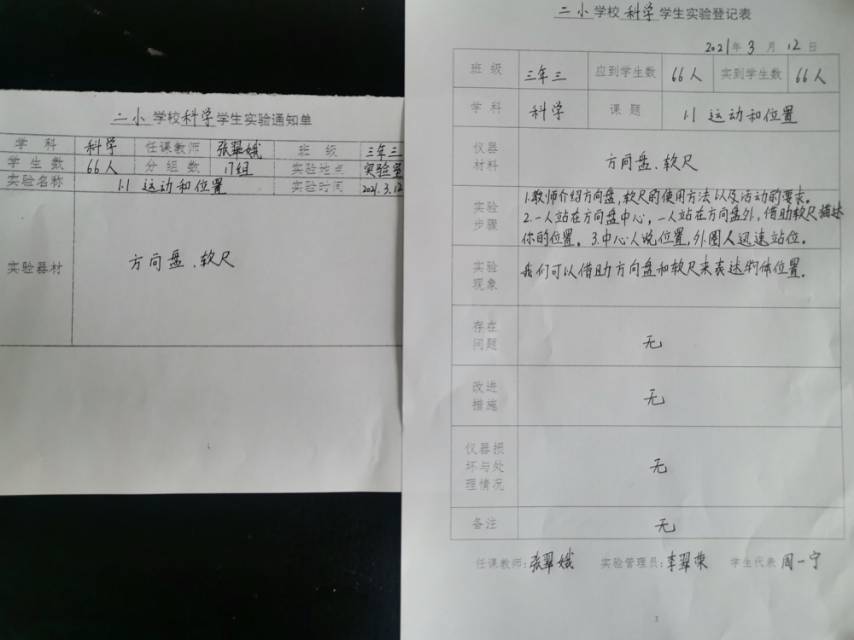 二小学校科学学生实验通知单
学科 科学 任课教师 张翠娥 班级 三年三
学生数 66人 分组数 17组 实验地点 实验室
实验名称 1.1 运动和位置 实验时间 2021.3.12
实验器材 方向盘、软尺
二小学校科学学生实验登记表
2021年3月12日
班级 三年三 应到学生数 66人 实到学生数 66人
学科 科学 课题 1.1 运动和位置
仪器
材料
方向盘、软尺
实验
步骤
1.教师介绍方向盘,软尺的使用方法以及活动的要求。
2.一人站在方向盘中心,一人站在方向盘外,借助软尺描述
你的位置。3.中心人说位置,外圈人迅速站位。
实验
现象
我们可以借助方向盘和软尺来表达物体位置。
存在
问题
无
改进
措施
无
仪器损
坏与处
理情况
无
备注 无
任课教师:张翠娥 实验管理员:李翠荣 学生代表 周一宁